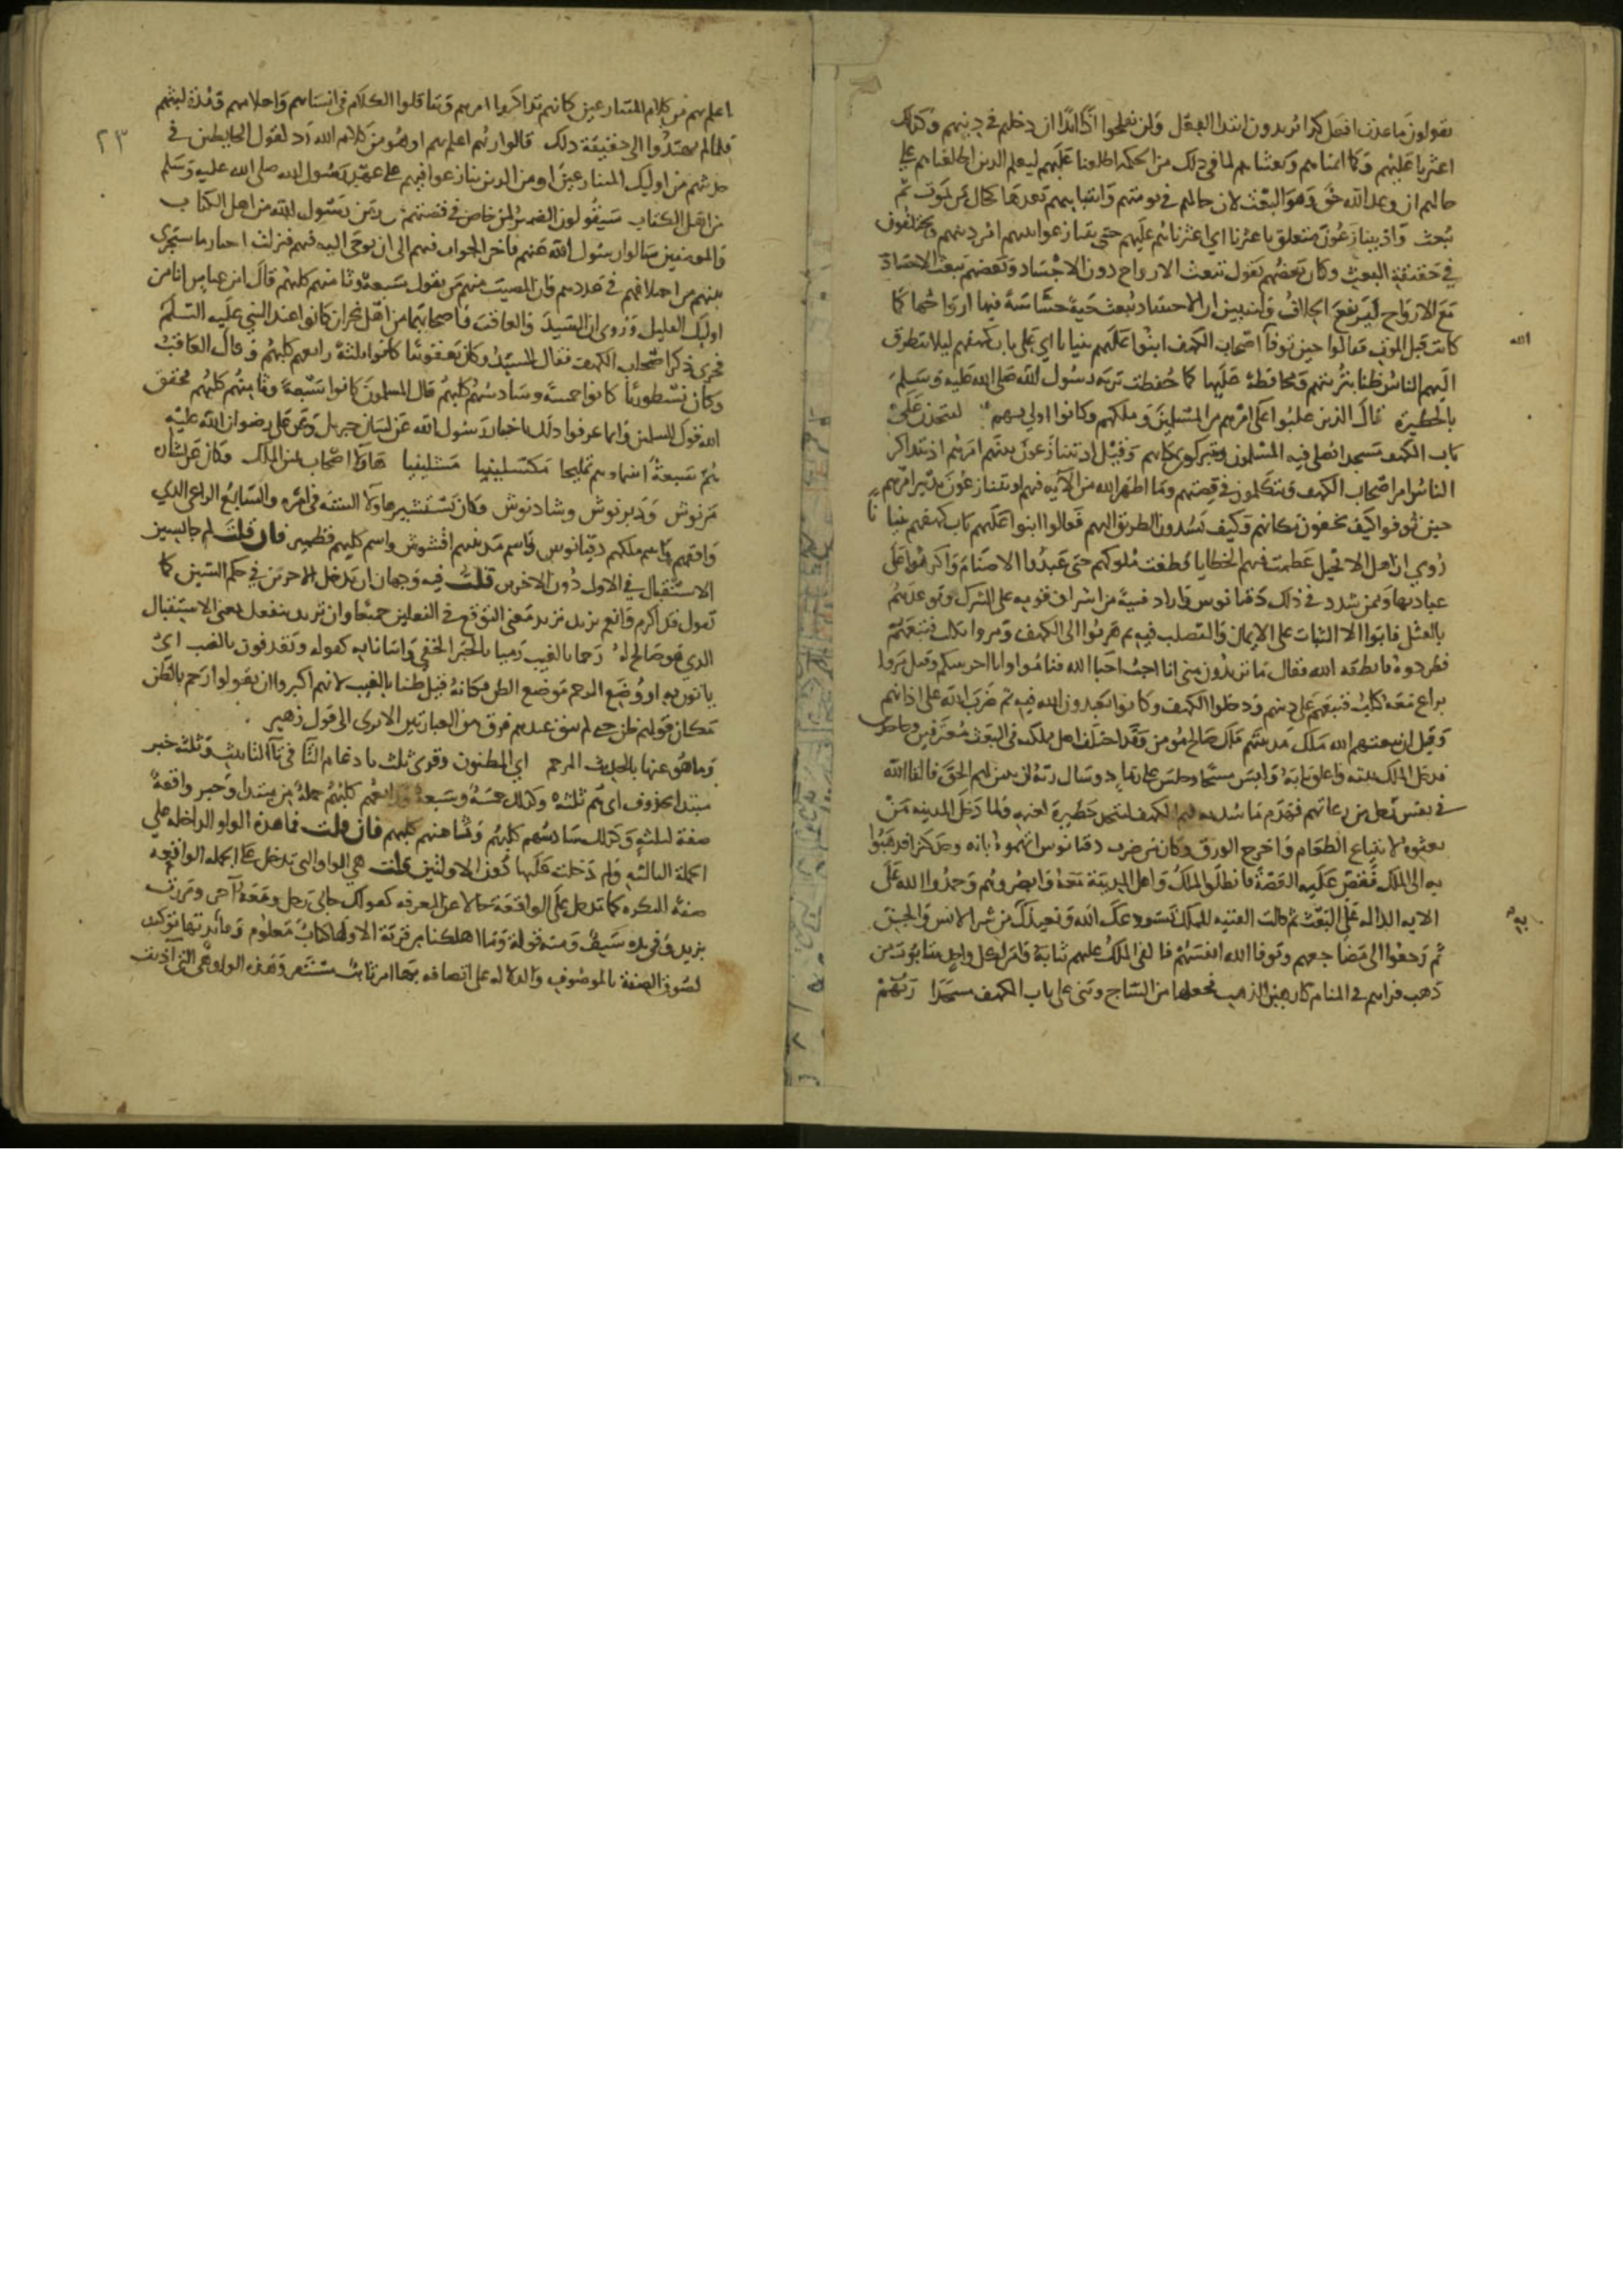 يقولون ما عدت افعل كذا يريدون ابتدا الفعل ولن تفلحوا اذا ابدا ان دخلتم في دينهم وكذلك
اعثرنا عليهم وكما انمناهم وبعثناهم لما في ذلك من الحكمة اطلعنا عليهم ليعلم الذين اطلعناهم على
حالهم ان وعد الله حق وهو البعث لان حالهم في نومتهم وانتباههم بعدها كحال من يموت ثم
يبعث واذ يتنازعون متعلق باعثرنا اي اعثرناهم عليهم حتى يتنازعوا بينهم امر دينهم ويختلفون
في حقيقة البعث وكان بعضهم يقول تبعث الارواح دون الاجساد وبعضهم يبعث الاجساد
مع الارواح ليرتفع الخلاف وليتبين ان الاجساد تبعث حية حساسة فيها ارواحها كما
كانت قبل الموت فقالوا حين توفا الله اصحاب الكهف ابنوا عليهم بنيانا اي على باب كهفهم ليلا يتطرق
اليهم الناس ظنا بتربتهم ومحافظة عليها كما حفظت تربة رسول الله صلى الله عليه وسلم
بالحظيرة قال الذين غلبوا على امرهم من المسلمين وملكهم وكانوا اولى بهم لنتخذن على
باب الكهف مسجدا يصلي فيه المسلمون ويتبركون بمكانهم وقيل اذ يتنازعون بينهم امرهم اي يتذاكر
الناس امر اصحاب الكهف ويتكلمون في قصتهم وما اظهر الله من الآية فيهم او يتنازعون تدبير امرهم
حين توفوا كيف يخفون مكانهم وكيف يسدون الطريق اليهم فقالوا ابنوا على باب كهفهم بنيانا
روي ان اهل الانجيل عظمت فيهم الخطايا وطغت ملوكهم حتى عبدوا الاصنام واكرهوا على
عبادتها وممن شدد في ذلك دقيانوس واراد فتية من اشراف قومه على الشرك وتوعدهم
بالقتل فابوا الا الثبات على الايمان والتصلب فيه ثم هربوا الى الكهف ومروا بكلب فتبعهم
فطردوه فانطقه الله فقال ما تريدون مني انا احب احبا الله فناموا وانا احرسكم وقيل مروا
براع معه كلب فتبعهم على دينهم ودخلوا الكهف وكانوا يعبدون الله فيه ثم ضرب الله على اذانهم
وقيل ان يبعثهم الله ملك مدينتهم ملك صالح مومن وقد اختلف اهل مملكته في البعث معترفين وجاحدين
فدخل الملك بيته واغلق بابه ولبس مسحا وجلس على رماد وسال ربه ان يبين لهم الحق فالقا الله
في نفس رجل من رعاتهم فهدم ما سد به فم الكهف ليتخذه حظيرة لغنمه ولما دخل المدينة من
بعثوه لابتياع الطعام واخرج الورق وكان من ضرب دقيانوس اتهموه بانه وجد كنزا فذهبوا
به الى الملك فقص عليه القصة فانطلق الملك واهل المدينة معه وابصروهم وحمدوا الله على
الاية الدالة على البعث ثم قالت الفتية للملك نستودعك الله ونعيذك به من شر الانس والجن
ثم رجعوا الى مضاجعهم وتوفا الله انفسهم فالقى الملك عليهم ثيابه وامر لكل واحد بتابوت من
ذهب فراهم في المنام كارهين الذهب فجعلها من الساج وبنى على باب الكهف مسجدا ربهم
٢٣
اعلم بهم من كلام المتنازعين كانهم تذاكروا امرهم وتناقلوا الكلام في انسابهم واحوالهم ومدة لبثهم
فلما لم يهتدوا الى حقيقة ذلك قالوا ربهم اعلم بهم او هو من كلام الله رد لقول الخايضين في
حديثهم من اوليك المتنازعين او من الذين تنازعوا فيهم على عهد رسول الله صلى الله عليه وسلم
من اهل الكتاب سيقولون الضمير لمن خاض في قصتهم في زمن رسول الله من اهل الكتاب
والمومنين سالوا رسول الله عنهم فاخر الجواب فيهم الى ان يوحى اليه فيهم فنزلت اخبارا بما سيجرى
بينهم من اختلافهم في عددهم وان المصيب منهم من يقول سبعة وثامنهم كلبهم قال ابن عباس انا من
اوليك القليل وروى ان السيد والعاقب واصحابهما من اهل نجران كانوا عند النبي عليه السلم
فجرى ذكر اصحاب الكهف فقال السيد وكان يعقوبيا كانوا ثلثة رابعهم كلبهم وقال العاقب
وكان نسطوريا كانوا خمسة وسادسهم كلبهم قال المسلمون كانوا سبعة وثامنهم كلبهم فحقق
الله قول المسلمين وانما عرفوا ذلك باخبار رسول الله عن لسان جبريل وعن علي رضوان الله عليه
هم سبعة اسماوهم يمليخا مكسلينيا مشلينيا هاولا اصحاب يمين الملك وكان عن يساره
مرنوش ودبرنوش وشاذنوش وكان يستشير هاولا الستة في امره والسابع الراعي الذي
وافقهم واسم ملكهم دقيانوس واسم مدينتهم افشوش واسم كلبهم قطمير فان قلت لم جا بسين
الاستقبال في الاول دون الاخرين قلت فيه وجهان ان تدخل الاخرين في حكم السين كما
تقول قد اكرم وانعم تريد معنى التوقع في الفعلين جميعا وان تريد بيفعل معنى الاستقبال
الذي هو صالح له رجما بالغيب رميا بالخبر الخفي واتيانا به كقوله ويقذفون بالغيب اي
ياتون به او وضع الرجم موضع الظن فكانه قيل ظنا بالغيب لانهم اكثروا ان يقولوا رجم بالظن
مكان قولهم ظن حتى لم يبق عندهم فرق بين العبارتين الا ترى الى قول زهير
وما هو عنها بالحديث المرجم اي المظنون وقرى ثلث بادغام الثا في تا التانيث وثلثة خبر
مبتدا محذوف اي هم ثلثة وكذلك خمسة وسبعة رابعهم كلبهم جملة من مبتدا وخبر واقعة
صفة لثلثة وكذلك سادسهم كلبهم وثامنهم كلبهم فان قلت فما هذه الواو الداخلة على
الجملة الثالثة ولم دخلت عليها دون الاولتين قلت هي الواو التي تدخل على الجملة الواقعة
صفة للنكرة كما تدخل على الواقعة حالا عن المعرفة كقولك جاني رجل ومعه آخر ومررت
بزيد وفي يده سيف ومنه قوله وما اهلكنا من قرية الا ولها كتاب معلوم وفايدتها توكيد
لصوق الصفة بالموصوف والدلالة على اتصافه بها امر ثابت مستقر وهذه الواو هي التي آذنت